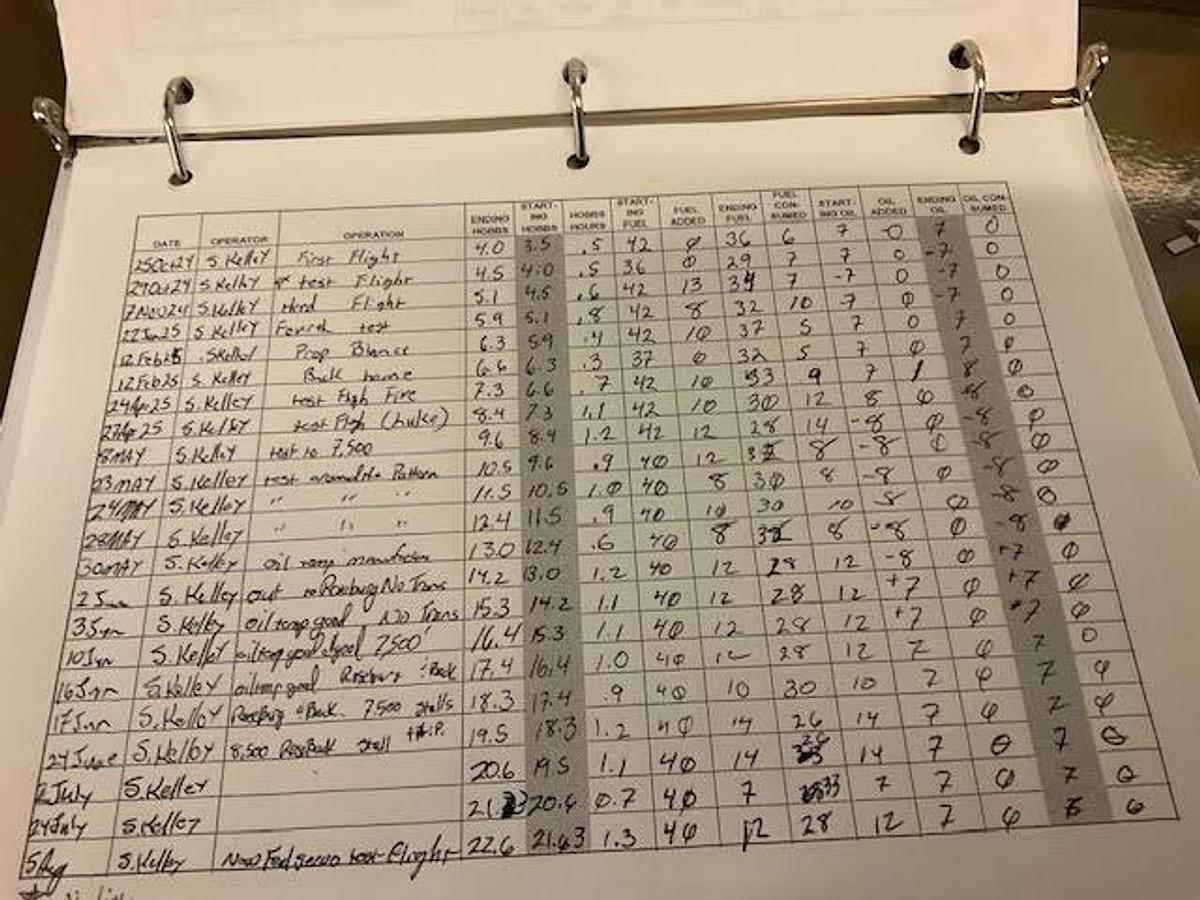 DATE OPERATOR OPERATION ENDING HOBBS START-ING HOBBS HOBBS HOURS START-ING FUEL FUEL ADDED ENDING FUEL FUEL CON-SUMED START-ING OIL OIL ADDED ENDING OIL OIL CON-SUMED
25Oct24 S. Kelley First Flight 4.0 3.5 .5 42 0 36 6 7 0 7 0
29Oct24 S. Kelley test Flight 4.5 4.0 .5 36 0 29 7 7 0 -7 0
7Nov24 S. Kelley Flight 5.1 4.5 .6 42 13 34 7 -7 0 -7 0
22Jan25 S. Kelley test 5.9 5.1 .8 42 8 32 10 -7 0 -7 0
12Feb25 S Kelley Prop Blance 6.3 5.9 .4 42 10 37 5 7 0 7 0
12Feb25 S. Kelley Back home 6.6 6.3 .3 37 0 32 5 7 0 7 0
24Apr25 S. Kelley test Fligh Fire 7.3 6.6 .7 42 10 33 9 7 1 8 0
27Apr25 S. Kelley test Fligh (Luke) 8.4 7.3 1.1 42 10 30 12 8 0 -8 0
8MAY S. Kelley test to 7,500 9.6 8.4 1.2 42 12 28 14 -8 0 -8 0
23MAY S. Kelley test around the Pattern 10.5 9.6 .9 40 12 8 -8 0 -8 0
24MAY S. Kelley " " " 11.5 10.5 1.0 40 8 30 8 -8 0 -8 0
28MAY S. Kelley " " " 12.4 11.5 .9 40 10 30 10 -8 0 -8 0
30MAY S. Kelley oil temp 13.0 12.4 .6 40 8 32 8 -8 0 -8 0
2 Jun S. Kelley out to Roseburg No Trans 14.2 13.0 1.2 40 12 28 12 -8 0 +7 0
3Jun S. Kelley oil temp good, No Trans 15.3 14.2 1.1 40 12 28 12 +7 0 +7 0
10Jun S. Kelley oil temp good 7500' 16.4 15.3 1.1 40 12 28 12 +7 0 +7 0
16Jun S. Kelley oil temp good Roseburg + Back 17.4 16.4 1.0 40 12 28 12 7 0 7 0
17Jun S. Kelley Roseburg + Back 7500 stalls 18.3 17.4 .9 40 10 30 10 7 0 7 0
24June S. Kelley 8,500 Stall 19.5 18.3 1.2 40 14 26 14 7 0 7 0
2July S. Kelley 20.6 19.5 1.1 40 14 26 14 7 0 7 0
24July S. Kelley 20.6 0.7 40 7 33 7 7 0 7 0
5Aug S. Kelley test Flight 22.6 1.3 40 12 28 12 7 0 0